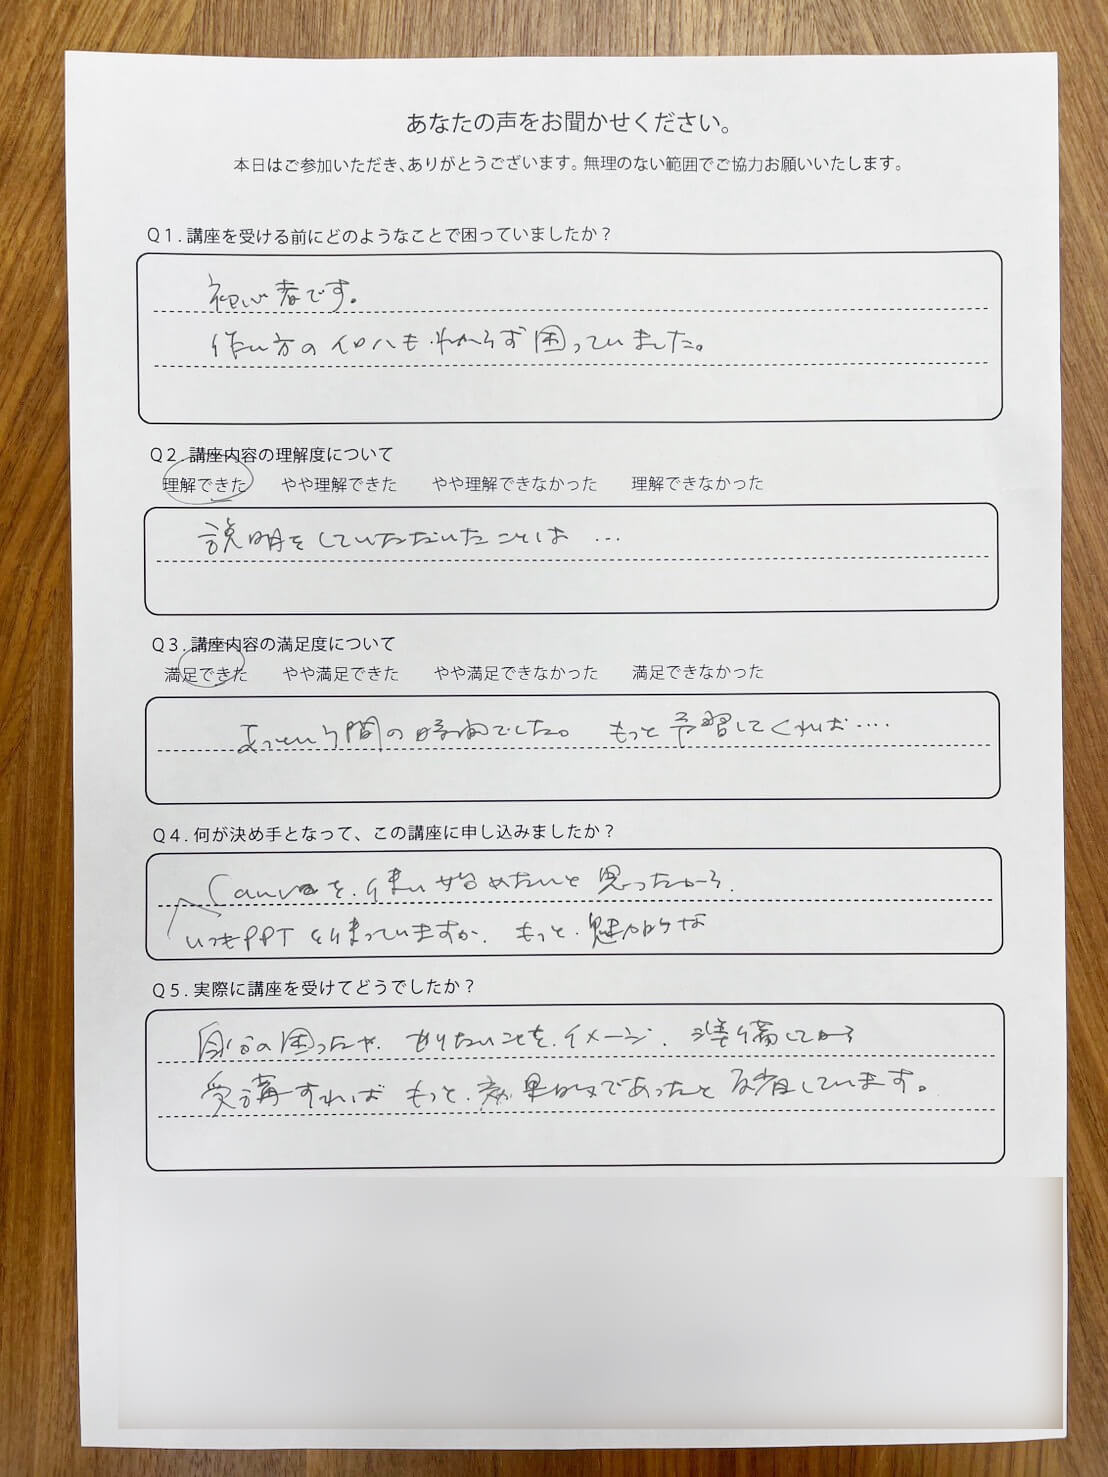 あなたの声をお聞かせください。
本日はご参加いただき、ありがとうございます。無理のない範囲でご協力お願いいたします。
Q1.講座を受ける前にどのようなことで困っていましたか？
初心者です。
作い方のイロハもわからず困っていました。
Q2.講座内容の理解度について
理解できた やや理解できた やや理解できなかった 理解できなかった
説明をしていただいたことは…
Q3.講座内容の満足度について
満足できた やや満足できた やや満足できなかった 満足できなかった
あっという間の時間でした。もっと予習してくれば....
Q4.何が決め手となって、この講座に申し込みましたか？
Canvaを、使い始めたいと思ったから.
いつもPPTを使っていますが、もっと、魅力的な
Q5.実際に講座を受けてどうでしたか？
自分の困ったや、やりたいことを、イメージ、準備してから
受講すればもっと、効果的であったと反省しています。